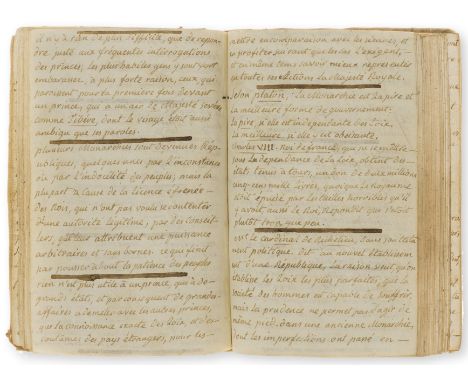 il n'y a rien de plus difficile, que de repon-
dre juste aux frequentes interrogations
des princes, les plus habiles gens y sont
embarassez, à plus forte raison, ceux qui
paroissent pour la premiere fois devant
un prince, qui a un air de Majesté
comme Tibere, dont le visage étoit aussi
ambigu que ses paroles.
plusieurs Monarchies sont devenues Repu-
bliques, quelques unes par l'inconstance
ou par l'indocilité des peuples, mais la
plupart à cause de la licence effrenée
des Rois, qui n'ont pas voulu se contenter
d'une autorité legitime, par des conseil-
lers, qui leur attribuent une puissance
arbitraire et sans bornes, ce qui finit
par pousser about la patience des peuples
rien n'est plus utile à un prince, qui a de
grands états, et par consequent de grandes
affaires à demesler avec les autres princes,
que la connoissance exacte des Loix, et des
coutumes des pays étrangers, pour les
mettre en comparaison avec les siennes, et
en profiter suivant que les cas l'exigent,
et en même tems savoir mieux representer
en toutes ses actions La Majesté Royale.
selon platon, la Monarchie est la pire et
la meilleure forme de gouvernement.
la pire, si elle est independante des Loix,
la meilleure, si elle y est obeissante.
Charles VIII. Roi de france, qui se
sous la dependance de la Loix, obtint des
états tenus à tours, un don de deux millions
cinq cens mille livres, quoi que le Royaume
fut épuisé par les tailles horribles qu'il
y avoit au
plutot trop que peu.
Mr. le cardinal de Richelieu, dans son testa-
ment politique, dit au nouvel établissem-
ent d'une Republique, La raison veut qu'on
établisse les Loix les plus parfaites, que la
société des hommes est capable de souffrir,
mais la prudence ne permet pas d'agir de
même pied, dans une ancienne Monarchie,
dont les imperfections ont passé en